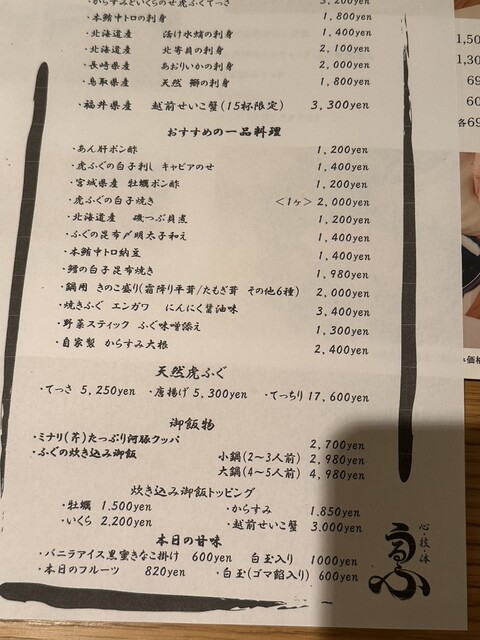 ・からすみといくらのせ虎ふぐてっさ 3,200yen
・本鮪中トロの刺身 1,800yen
・北海道産 活け水蛸の刺身 1,400yen
・北海道産 北寄貝の刺身 2,100yen
・長崎県産 あおりいかの刺身 2,000yen
・鳥取県産 天然 鰤の刺身 1,800yen
・福井県産 越前せいこ蟹(15杯限定) 3,300yen
おすすめの一品料理
・あん肝ポン酢 1,200yen
・虎ふぐの白子刺し キャビアのせ 1,400yen
・宮城県産 牡蠣ポン酢 1,200yen
・虎ふぐの白子焼き <1ヶ> 2,000yen
・北海道産 磯つぶ貝煮 1,200yen
・ふぐの昆布〆明太子和え 1,400yen
・本鮪中トロ納豆 1,400yen
・鱈の白子昆布焼き 1,980yen
・鍋用 きのこ盛り(霜降り平茸/たもぎ茸 その他6種) 2,000yen
・焼きふぐ エンガワ にんにく醤油味 3,400yen
・野菜スティック ふぐ味噌添え 1,300yen
・自家製 からすみ大根 2,400yen
天然虎ふぐ
・てっさ 5,250yen ・唐揚げ 5,300yen ・てっちり 17,600yen
御飯物
・ミナリ(芹)たっぷり河豚クッパ 2,700yen
・ふぐの炊き込み御飯 小鍋(2〜3人前) 2,980yen
大鍋(4〜5人前) 4,980yen
炊き込み御飯トッピング
・牡蠣 1.500yen ・からすみ 1.850yen
・いくら 2,200yen ・越前せいこ蟹 3.000yen
本日の甘味
・バニラアイス黒蜜きなこ掛け 600yen 白玉入り 1000yen
・本日のフルーツ 820yen ・白玉(ゴマ餡入り) 600yen
心・技・体
うるふ
1,50
1,30
69
60
各69
価格